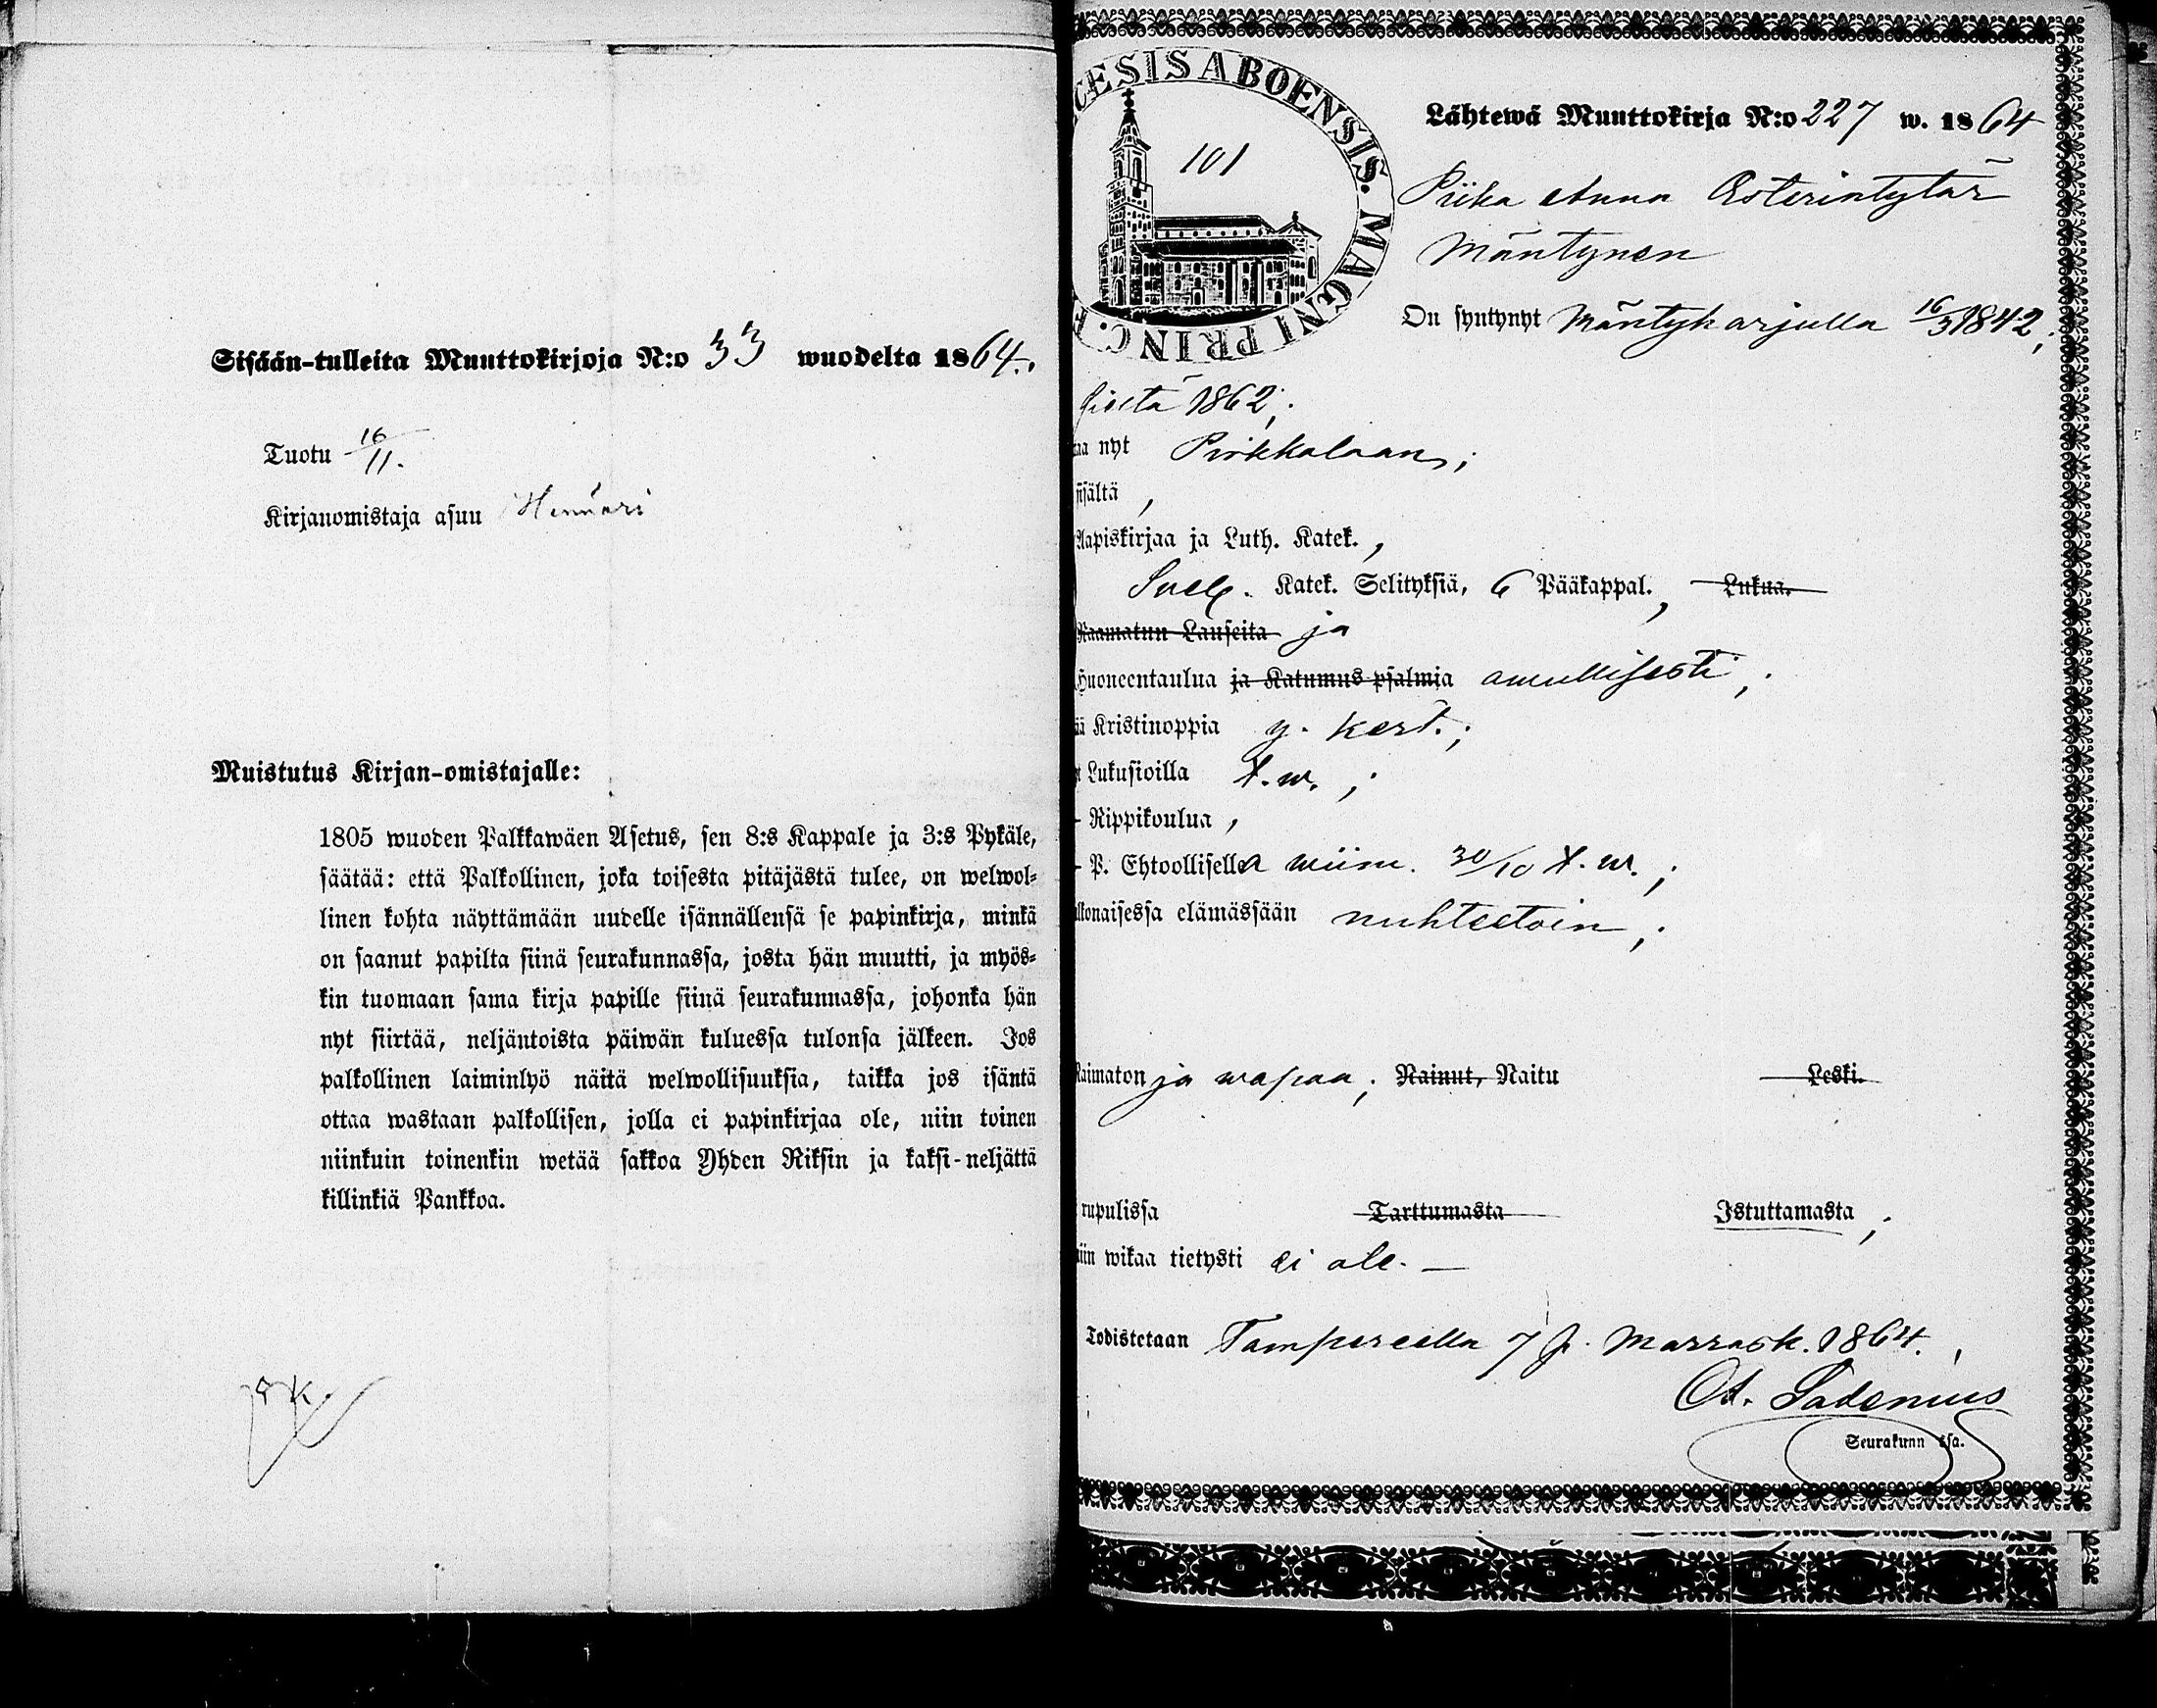 Sisään-tulleita Muuttokirjoja N:o 33 wuodelta 1864.
Tuotu 16/11.
Kirjanomistaja asuu
Muistutus Kirjan-omistajalle:
1805 wuoden Palkkawäen Asetus, sen 8:s Kappale ja 3:s Pykäle,
säätää: että Palkollinen, joka toisesta pitäjästä tulee, on welwol-
linen kohta näyttämään uudelle isännällensä se papinkirja, minkä
on saanut papilta siinä seurakunnassa, josta hän muutti, ja myös-
kin tuomaan sama kirja papille siinä seurakunnassa, johonka hän
nyt siirtää, neljäntoista päiwän kuluessa tulonsa jälkeen. Jos
palkollinen laiminlyö näitä welwollisuuksia, taikka jos isäntä
ottaa wastaan palkollisen, jolla ei papinkirjaa ole, niin toinen
niinkuin toinenkin wetää sakkoa Yhden Riksin ja kaksi-neljättä
killinkiä Pankkoa.
CESIS ABOENSIS. MAGNI PRINC. F
101
Lähtewä Muuttokirja N:o 227 w. 1864
Piika Anna Esterintytär
Mäntynen
On syntynyt Mäntykarjulla 16/3 1842;
sistä 1862;
aa nyt Pirkkalaan;
sisältä,
Aapiskirjaa ja Luth. Katek.,
Svel. Katek. Selityksiä, 6 Pääkappal., Lukua.
Raamatun Lauseita ja
Huoneentaulua ja Katumus psalmia awullisesti;
ä Kristinoppia y. kert.;
t Lukusioilla t. w.;
- Rippikoulua,
- P. Ehtoollisella wiim. 30/10 t. w.;
lkonaisessa elämässään nuhteetoin;
Naimaton ja wapaa; Nainut, Naitu Leski.
rupulissa Tarttumasta Istuttamasta;
iin wikaa tietysti ei ole. —
Todistetaan Tampereella 7 p. Marrask. 1864.
Seurakunn sa.